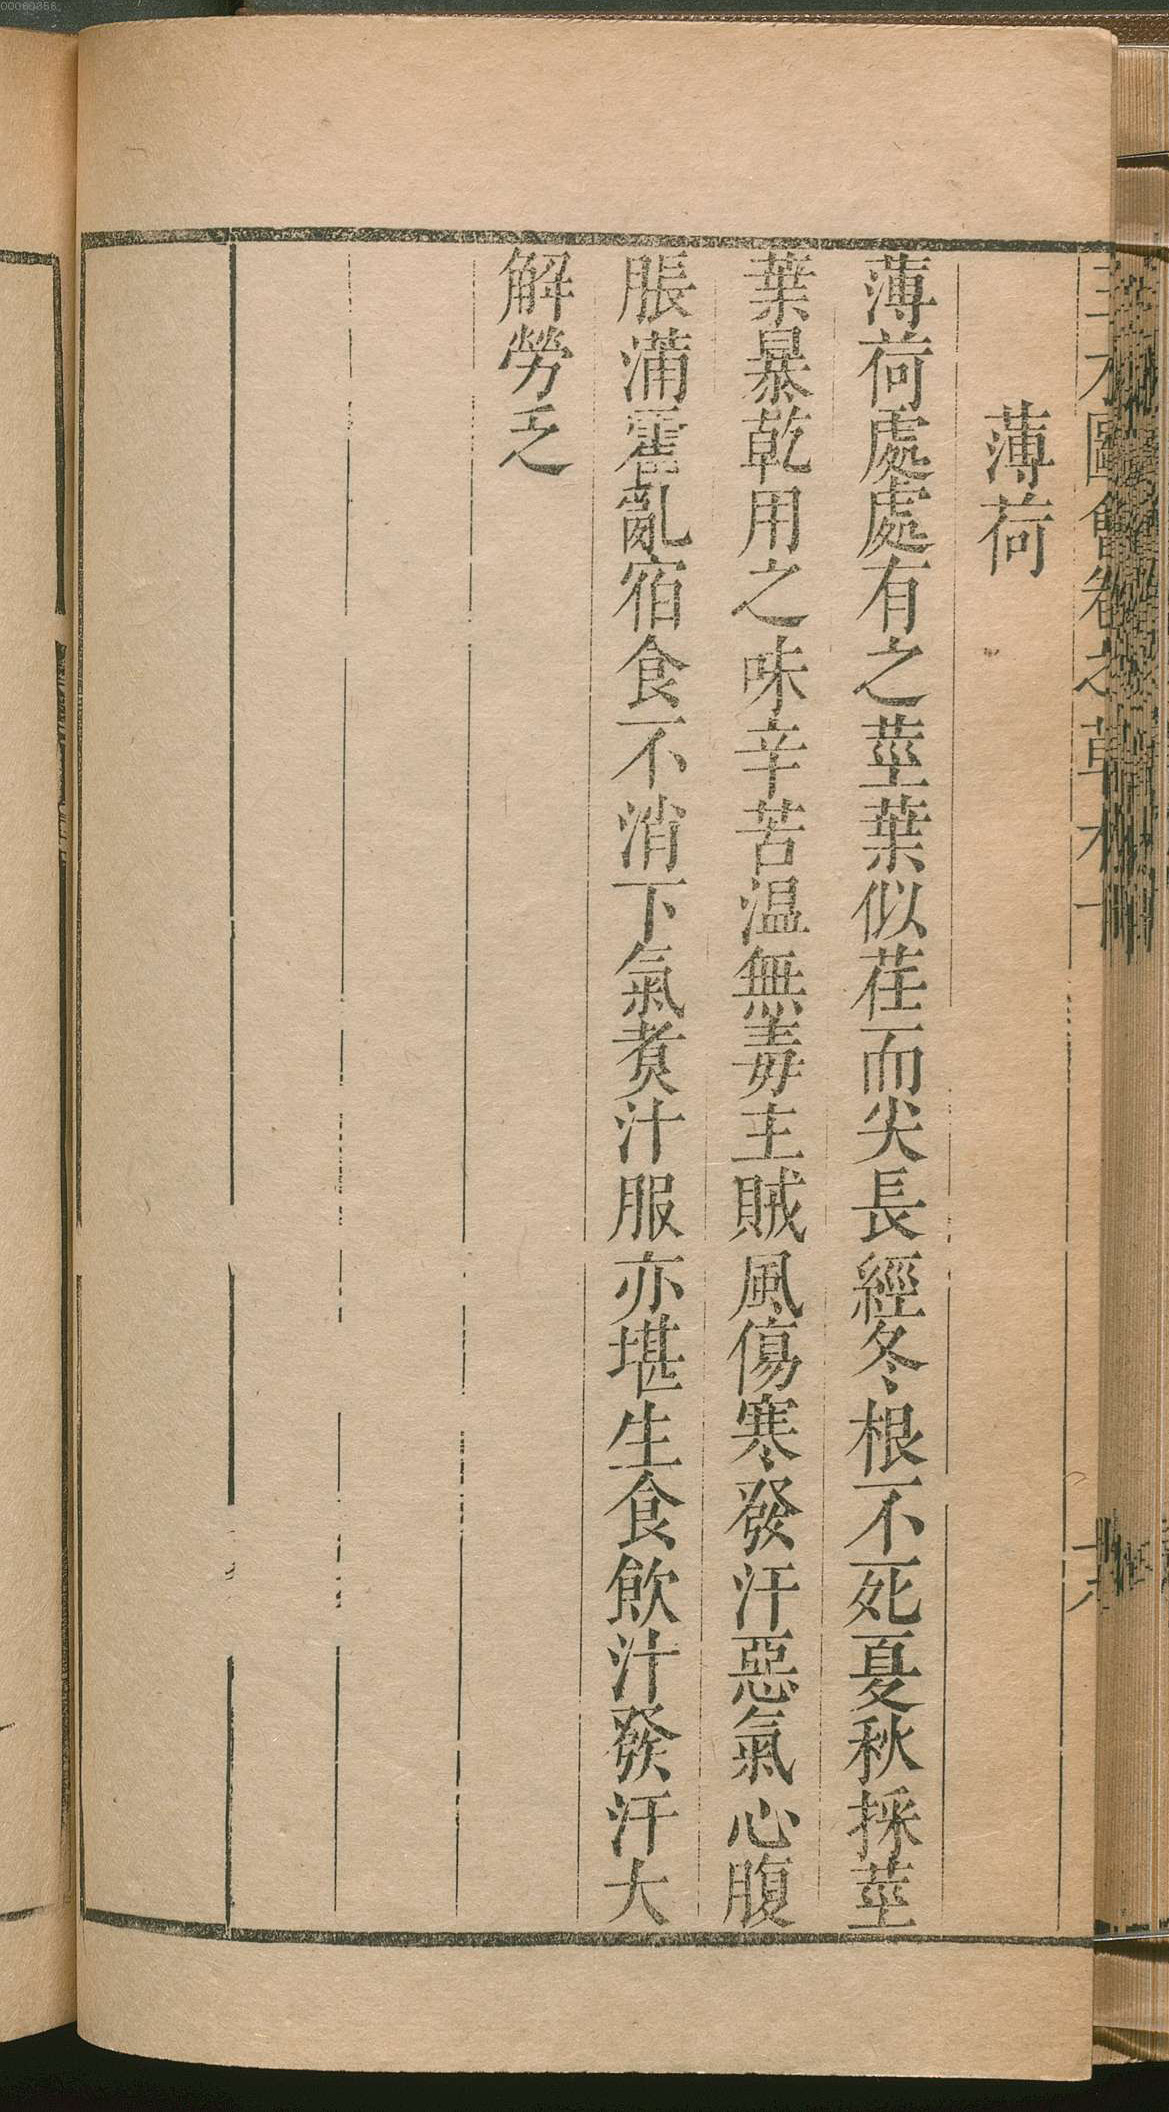 薄荷
薄荷處處有之莖葉似荏而尖長經冬根不死夏秋採莖
葉暴乾用之味辛苦温無毒主賊風傷寒發汗惡氣心腹
脹滿霍亂宿食不消下氣煑汁服亦堪生食飲汁發汗大
解勞乏
00060356